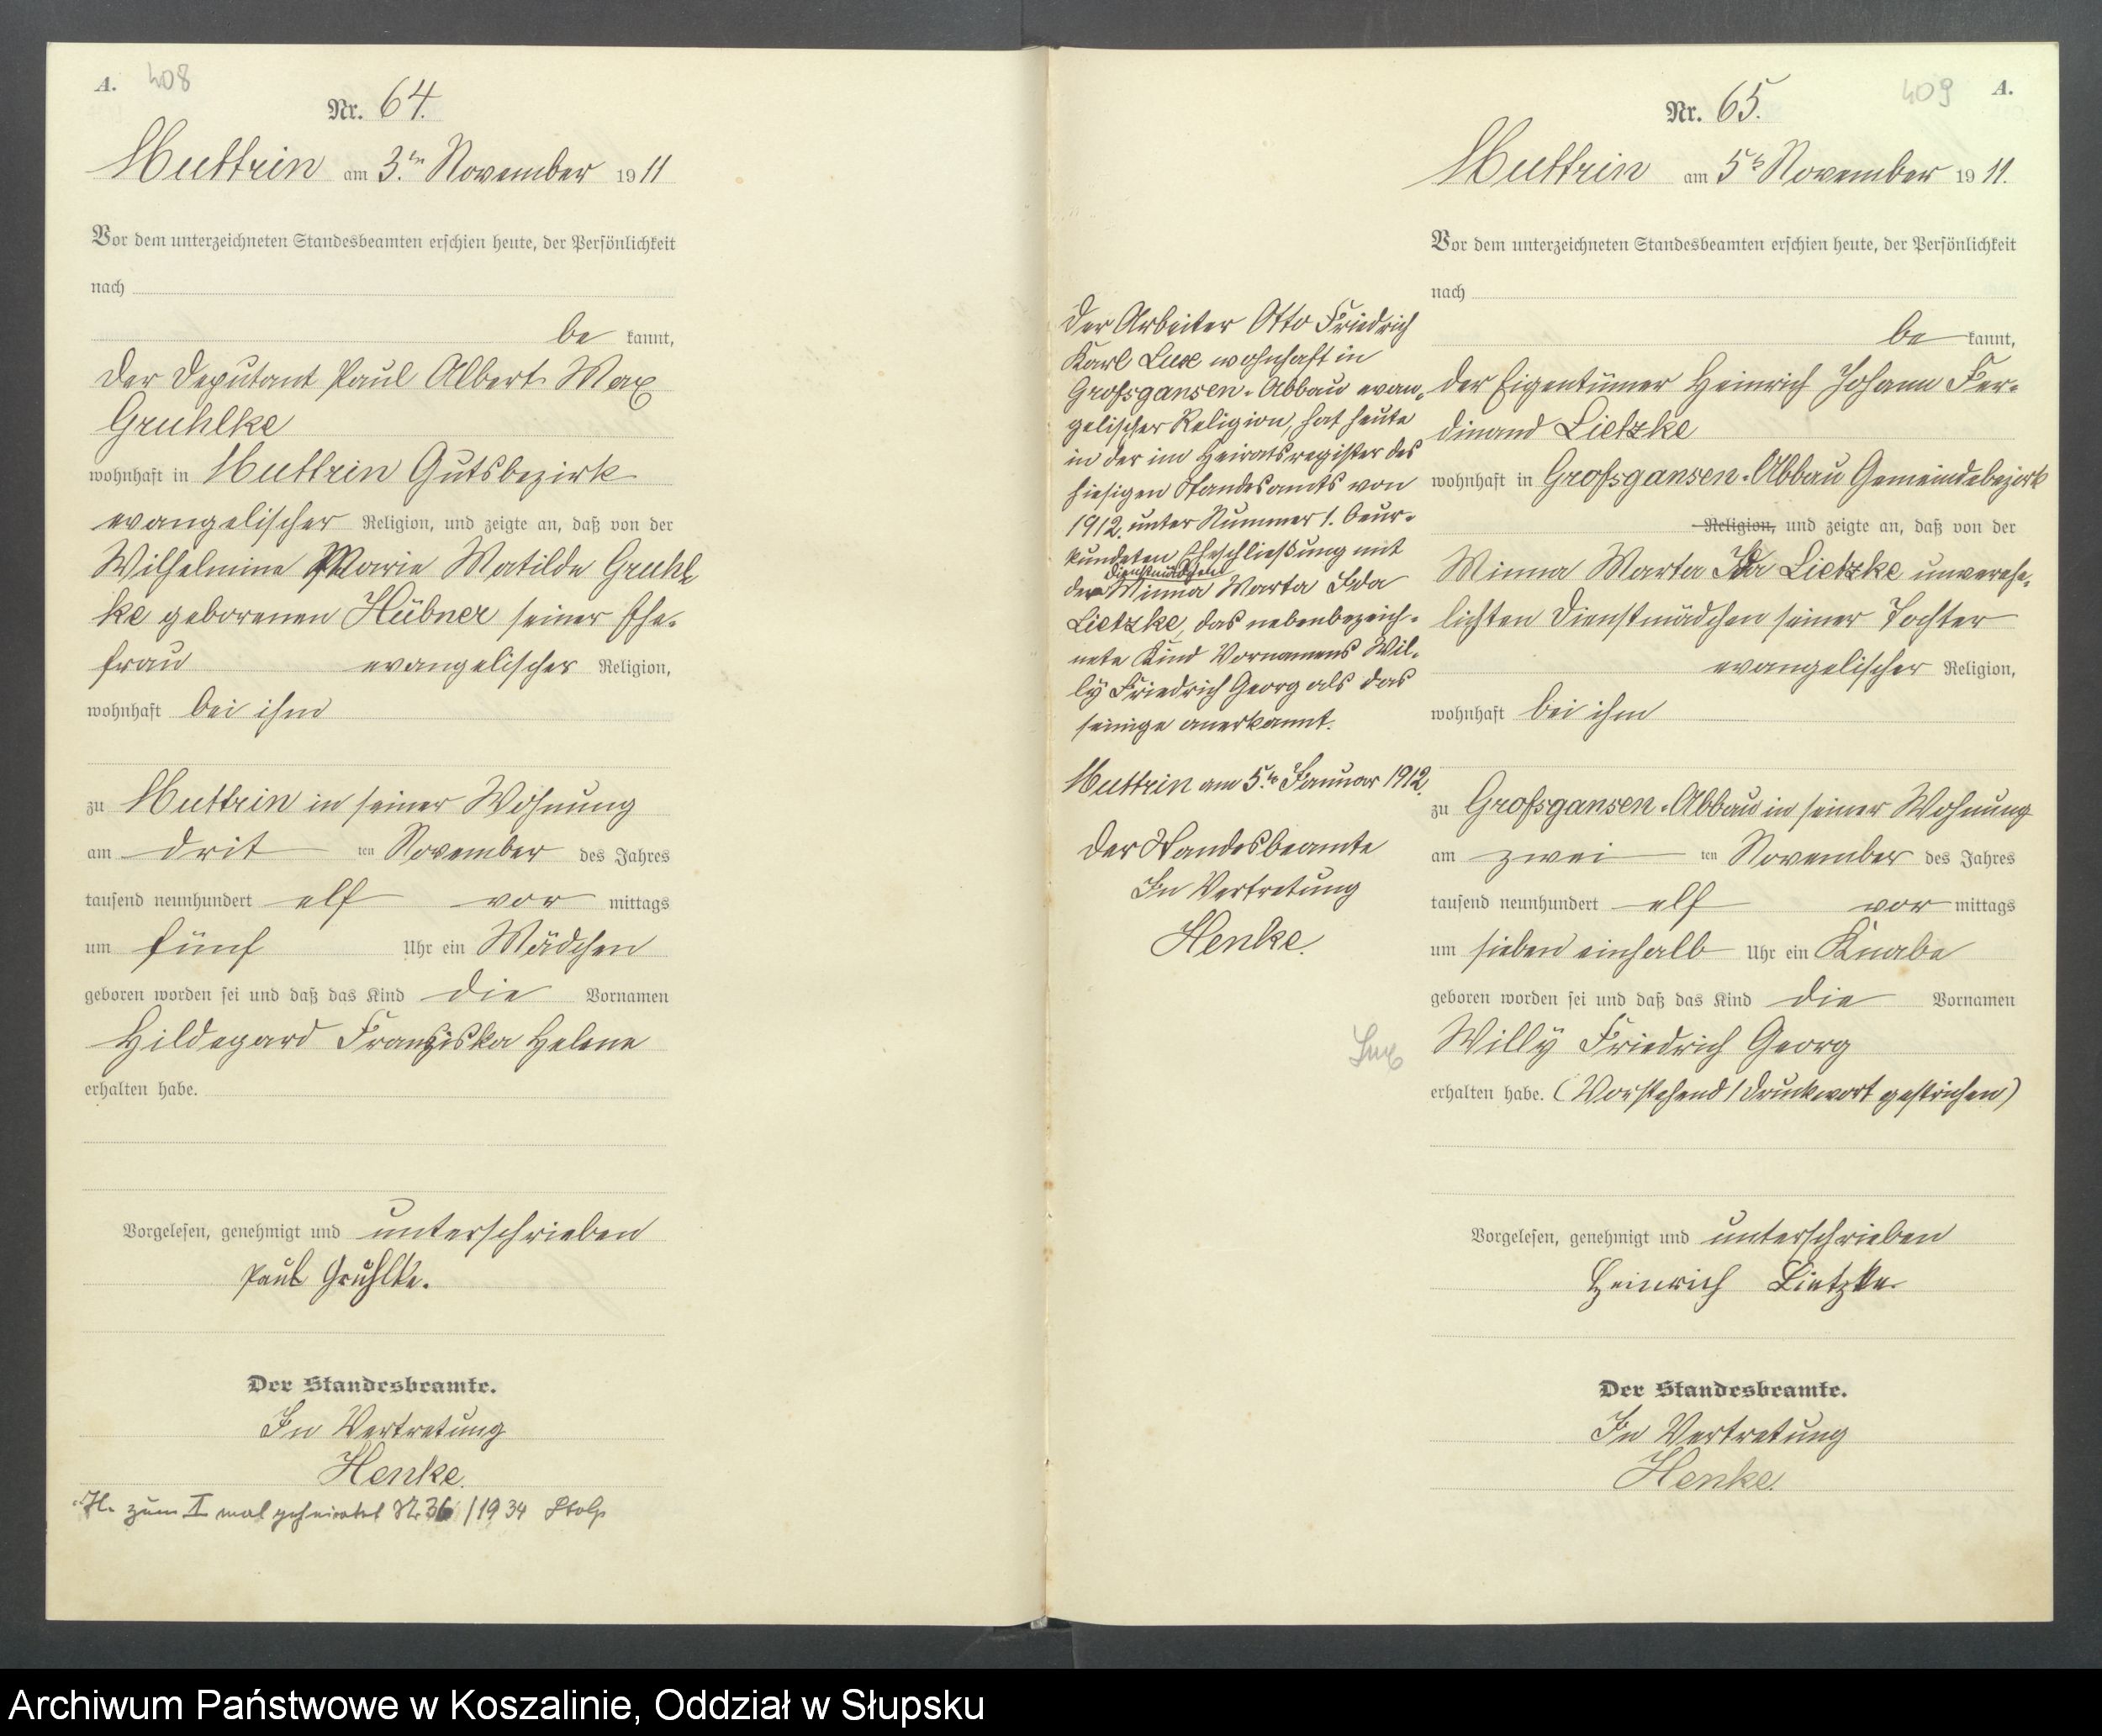 A. 408
Nr. 64.
Muttrin am 3.ten November 1911
Vor dem unterzeichneten Standesbeamten erschien heute, der Persönlichkeit
nach
be kannt,
der Deputant Paul Albert Max
Gruhlke
wohnhaft in Muttrin Gutsbezirk
evangelischer Religion, und zeigte an, daß von der
Wilhelmine Marie Matilde Gruhl
ke geborenen Hübner seiner Ehe-
frau evangelischer Religion,
wohnhaft bei ihm
zu Muttrin in seiner Wohnung
am drit ten November des Jahres
tausend neunhundert elf vor mittags
um fünf Uhr ein Mädchen
geboren worden sei und daß das Kind die Vornamen
Hildegard Franziska Helene
erhalten habe.
Vorgelesen, genehmigt und unterschrieben
Paul Gruhlke.
Der Standesbeamte.
In Vertretung
Henke.
zum II mal geheiratet Nr 36/1934 Stolp
Der Arbeiter Otto Friedrich
Karl Luxe wohnhaft in
Grofsgansen-Abbau evan-
gelischer Religion, hat heute
in der im Heiratsregister des
hiesigen Standesamts von
1912. unter Nummer 1. beur-
kundeten Eheschließung mit
Dienstmädchen
der Minna Marta Ida
Lietzke, das nebenbezeich-
nete Kind Vornamens Wil-
ly Friedrich Georg als das
seinige anerkannt.
Muttrin am 5.ten Januar 1912.
Der Standesbeamte
In Vertretung
Henke.
Lux
409 A.
Nr. 65.
Muttrin am 5ten November 1911.
Vor dem unterzeichneten Standesbeamten erschien heute, der Persönlichkeit
nach
be kannt,
der Eigentümer Heinrich Johann Fer-
dinand Lietzke
wohnhaft in Grofsgansen-Abbau Gemeindebezirk
Religion, und zeigte an, daß von der
Minna Marta Ida Lietzke unverehe-
lichten Dienstmädchen seiner Tochter
evangelischer Religion,
wohnhaft bei ihm
zu Grofsgansen-Abbau in seiner Wohnung
am zwei ten November des Jahres
tausend neunhundert elf vor mittags
um sieben einhalb Uhr ein Knabe
geboren worden sei und daß das Kind die Vornamen
Willy Friedrich Georg
erhalten habe. (Vorstehend 1 Druckwort gestrichen)
Vorgelesen, genehmigt und unterschrieben
Heinrich Lietzke
Der Standesbeamte.
In Vertretung
Henke.
Archiwum Państwowe w Koszalinie, Oddział w Słupsku